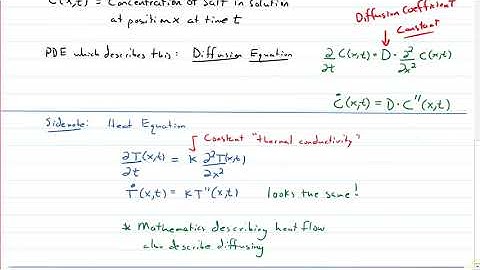 C(x,t) = Concentration of salt in solution
at position x at time t
Diffusion Coefficient
Constant
PDE which describes this: Diffusion Equation
∂/∂t C(x,t) = D · ∂²/∂x² C(x,t)
Ċ(x,t) = D · C''(x,t)
Sidenote: Heat Equation
Constant "thermal conductivity"
∂T(x,t)/∂t = K ∂²T(x,t)/∂x²
Ṫ(x,t) = K T''(x,t) looks the same!
* Mathematics describing heat flow
also describe diffusing